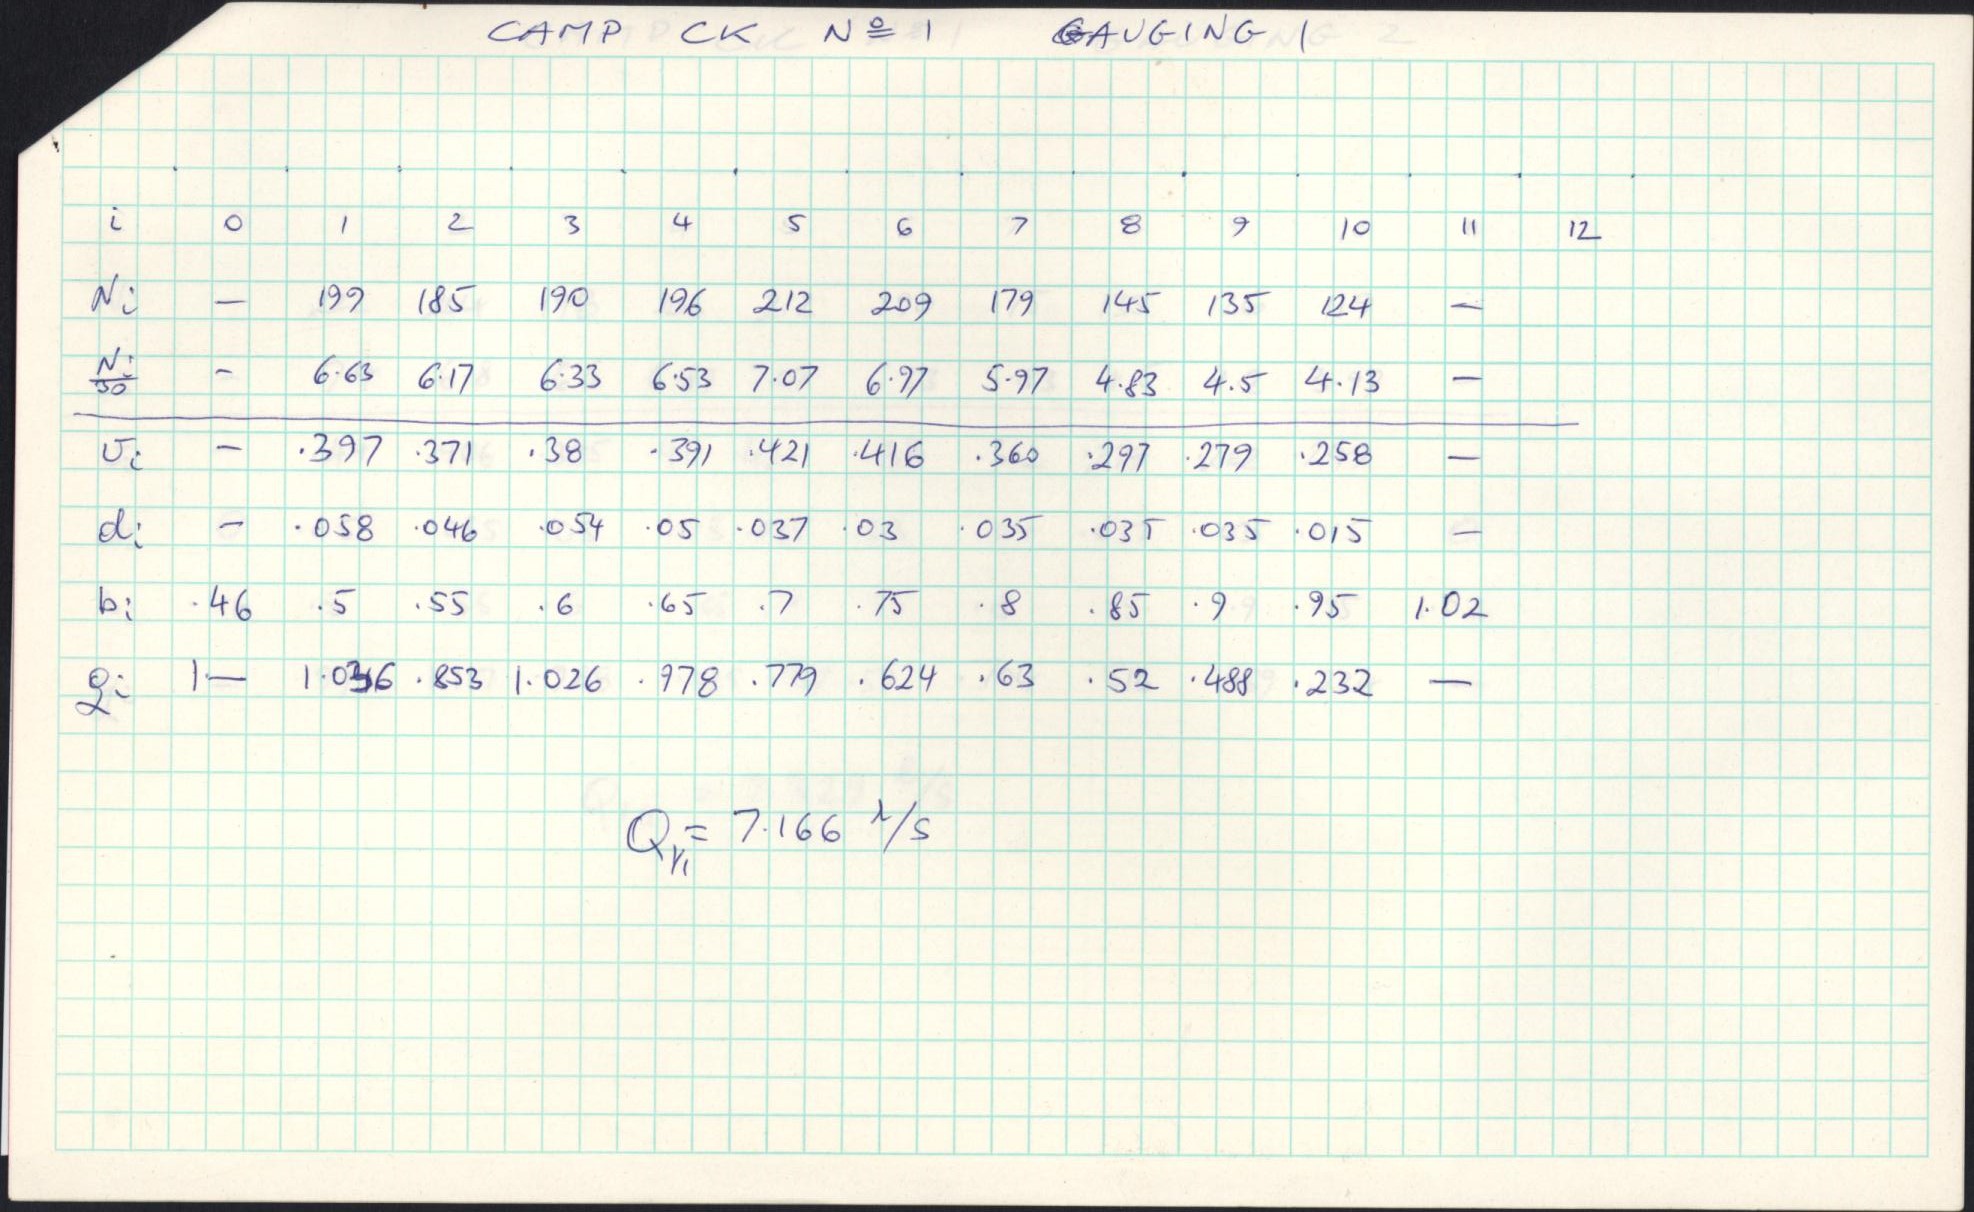 CAMP CK Nº 1 GAUGING 1
i 0 1 2 3 4 5 6 7 8 9 10 11 12
Ni — 199 185 190 196 212 209 179 145 135 124 —
Ni/30 - 6.63 6.17 6.33 6.53 7.07 6.97 5.97 4.83 4.5 4.13 —
vi — .397 .371 .38 .391 .421 .416 .360 .297 .279 .258 —
di — .058 .046 .054 .05 .037 .03 .035 .035 .035 .015 —
bi .46 .5 .55 .6 .65 .7 .75 .8 .85 .9 .95 1.02
qi — .853 1.026 .978 .779 .624 .63 .52 .488 .232 —
Q = 7.166 l/s